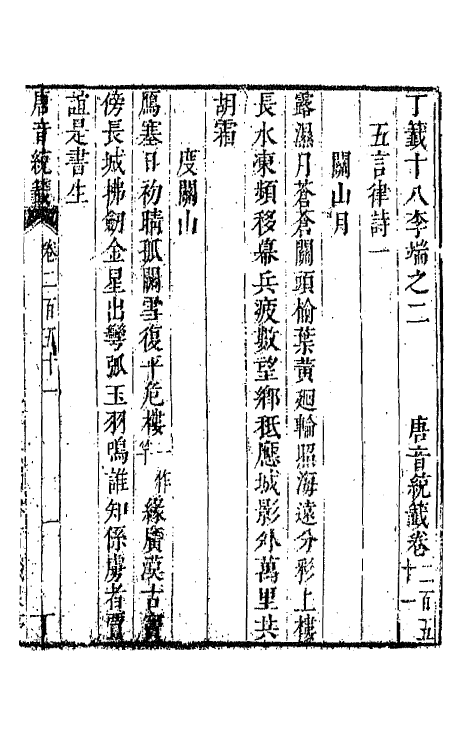 丁籖十八李端之二　唐音統籖卷二百五十一
五言律詩一
關山月
露濕月蒼蒼關頭榆葉黃廻輪照海遠分彩上樓
長水凍頻移幕兵疲數望鄉秪應城影外萬里共
胡霜
度關山
鴈塞日初晴孤關雪復平危樓一作竿緣廣漠古竇
傍長城拂劒金星出彎弧玉羽鳴誰知係虜者賈
誼是書生
唐音統籖　卷二百五十一　丁